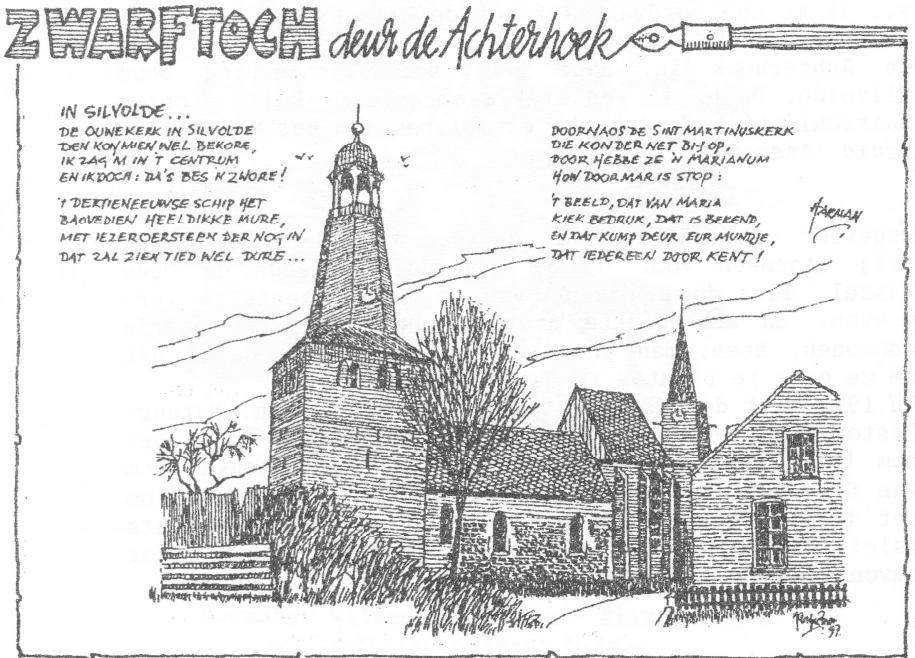 ZWARFTOCH deur de Achterhoek
IN SILVOLDE...
DE OUNEKERK IN SILVOLDE
DEN KOMMIEN WEL BEKORE,
IK ZAG 'M IN 'T CENTRUM
EN IK DOCH: DA'S BES 'N ZWORE!
'T DERTIENEEUWSE SCHIP HET
BAOVEDIEN HEEL DIKKE MURE,
MET IEZEROERSTEEN DER NOG IN
DAT ZAL ZIEN TIED WEL DURE...
DOORNAOS DE SINT MARTINUSKERK
DIE KON DER NET BI-J OP,
DOOR HEBBE ZE 'N MARIANUM
HOW DOOR MAR IS STOP:
'T BEELD, DAT VAN MARIA
KIEK BEDRUK, DAT IS BEKEND,
EN DAT KUMP DEUR EUR MUNDJE,
DAT IEDEREEN DOOR KENT!
HARMAN
97